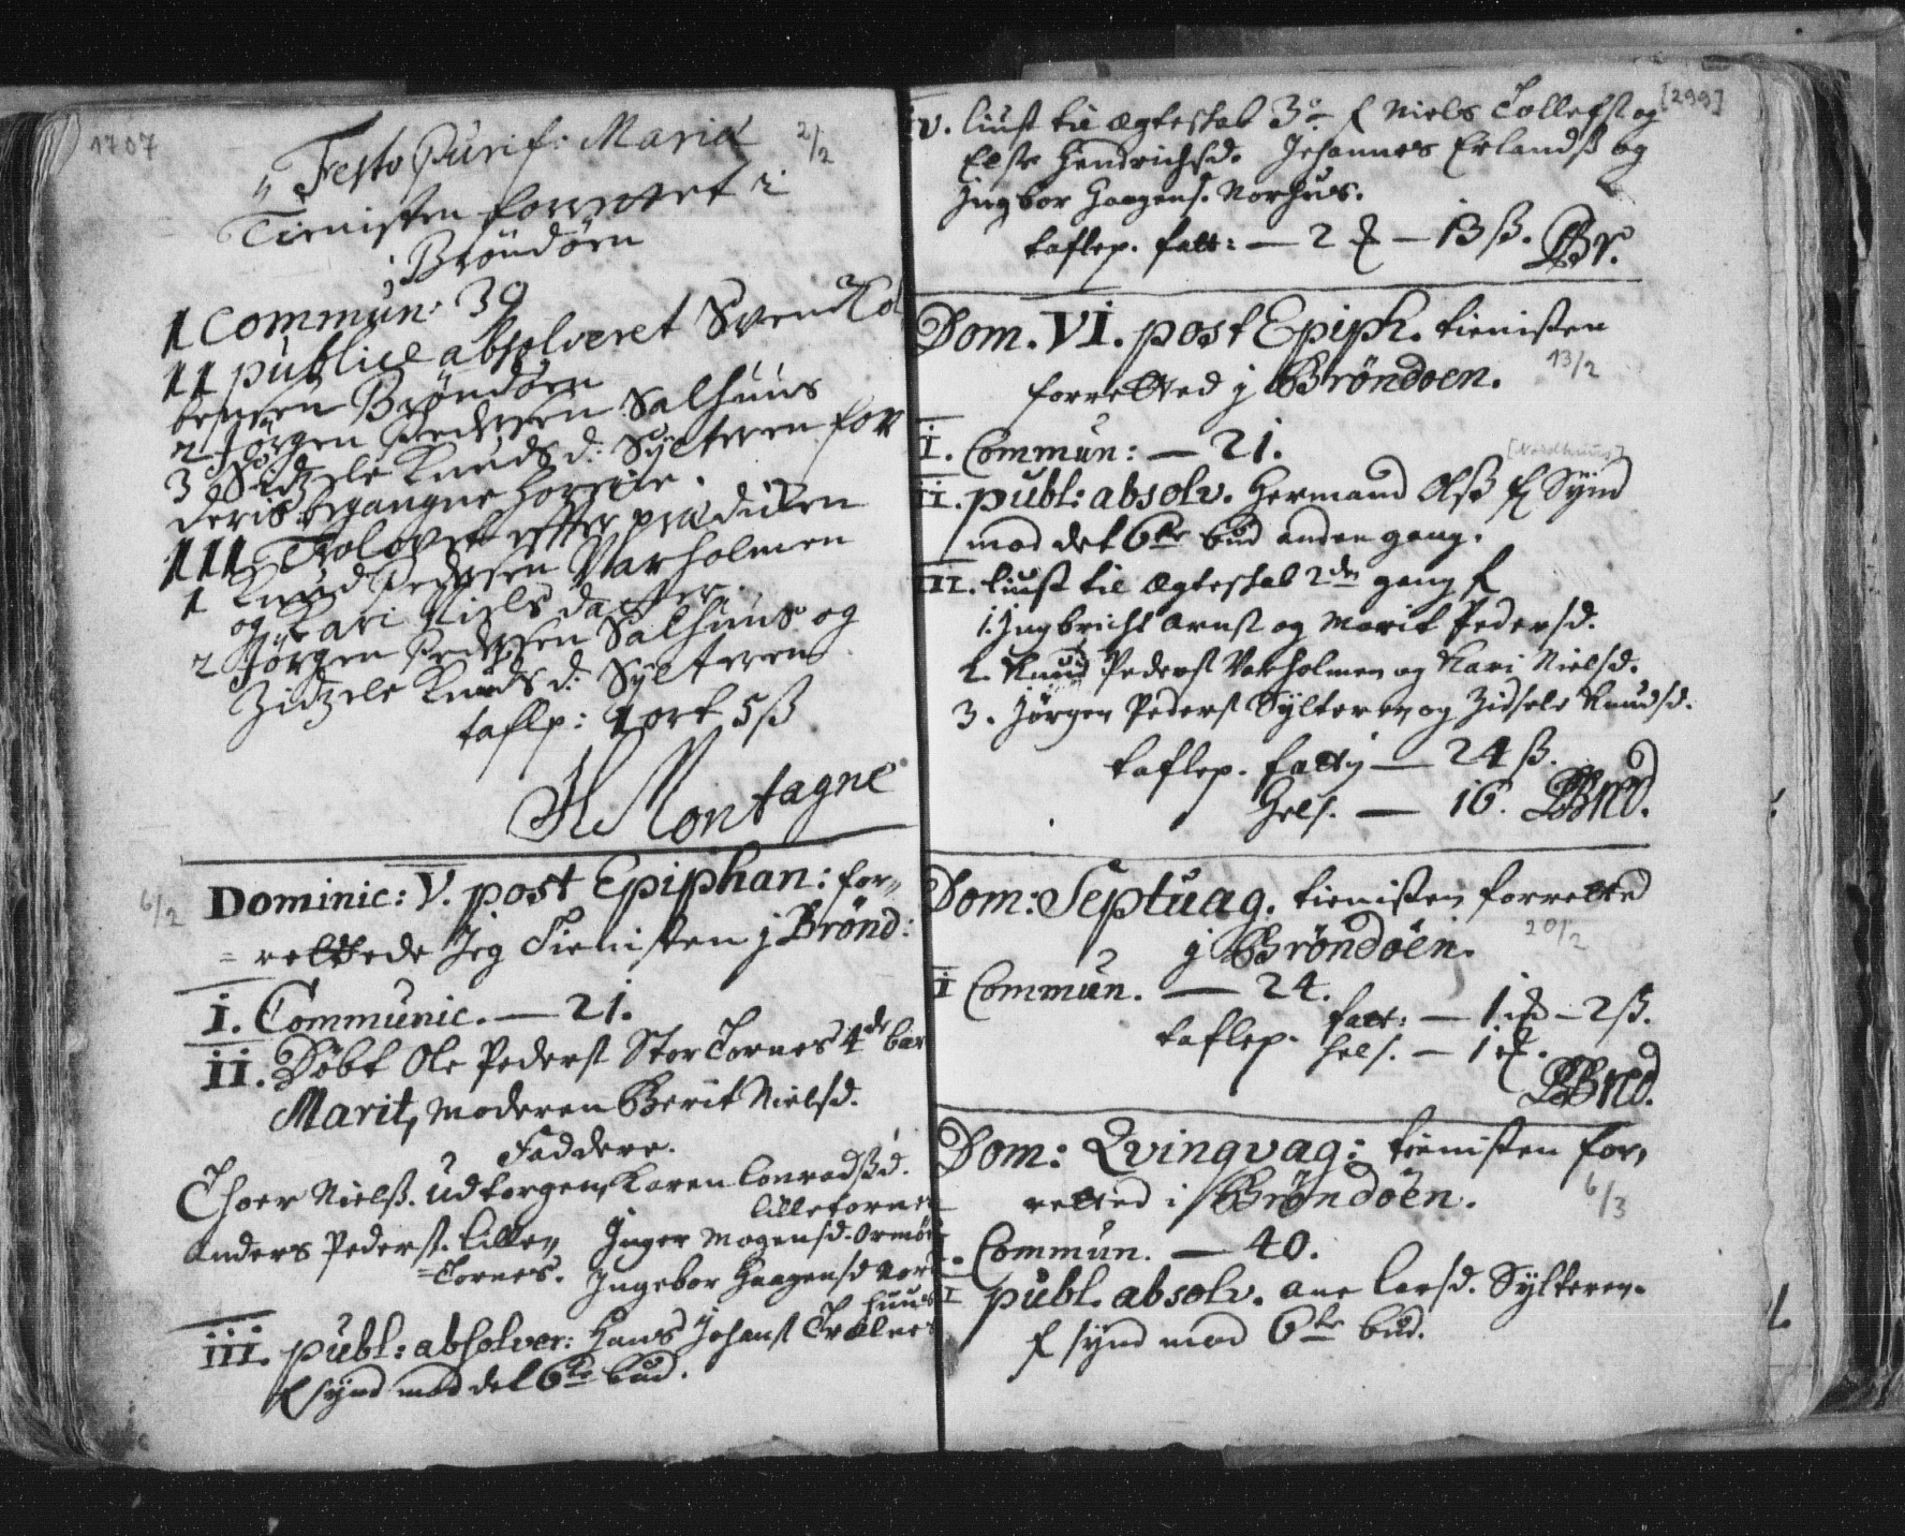 1707
Festo Purif: Mariæ 2/2
Tienisten forrettet i
Bröndöen
I Commun: 39
II publice absolveret Svend
Bröndöen
2 Jörgen Pedersen Salhuus
3 Sidzele Knuds d: Sylteren for
deris begangne horerie.
III Trolovet efter prædiken
1 Knud Pedersen Varholmen
og Kari Niels daatter.
2 Jörgen Pedersen Salhuus og
Zidzele Knuds d: Sylteren
taflp: 1 ort 5 ß
Montagne
6/2
Dominic: V. post Epiphan: for,,
= rettede Jeg Tienisten j Brönd:
I. Communic. — 21.
II. Döbt Ole Peders: Stor Tornes 4de bar
Marit, moderen Berit Nielsd.
Faddere.
Thoer Nielß. Udtorgen, Karen Conradßd.
lilletorne
Anders Peders. lille,, Inger Mogensd. Ormö
=Tornes. Ingebor Haagensd Nor
huus
III. publ: absolver: Hans Johans Trælnes
f synd mod det 6te bud.
[299]
IV. liust til ægteskab 3o f Niels Tollefs og
Else Hendrichsd. Johannes Erlandß og
Ingbor Haagensd. Norhuus.
taflep. fatt: — 2 — 13 ß. Br.
Dom. VI. post Epiph. tienisten
forretted j Bröndoen. 13/2
I. Commun: — 21.
[Nordhuus]
II. publ: absolv. Hermand Olß f Synd
mod det 6te bud anden gang.
III. liust til ægteskab 2den gang f
1. Ingbricht Arnß og Marit Pedersd.
2. Knud Peders Varholmen og Kari Nielsd.
3. Jörgen Peders Sylteren og Zidsele Knudsd.
taflep. fattig — 24 ß.
Hels. — 16.
Dom: Septuag. tienisten forretted
j Bröndöen. 20/2
I Commun. — 24.
fatt: — 1 — 2 ß.
taflep. hels. — 1
Dom: Qvingvag: tienisten for,
retted i Bröndöen. 6/3
I. Commun. — 40.
II publ. absolv. Ane Larsd. Sylteren.
f synd mod 6te bud.